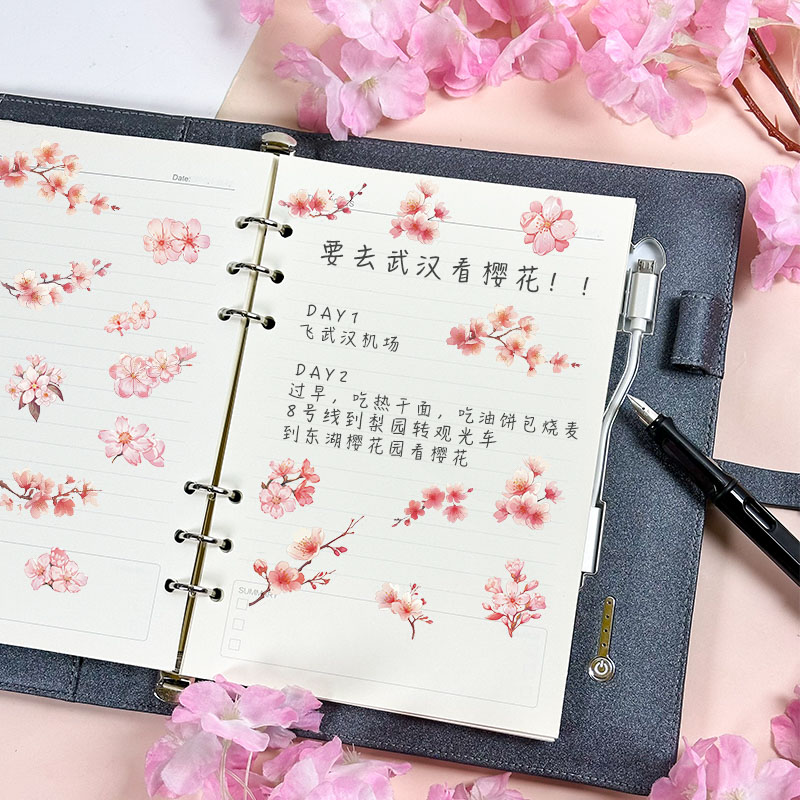 Date:
要去武汉看樱花！！
DAY1
飞武汉机场
DAY2
过早，吃热干面，吃油饼包烧麦
8号线到梨园转观光车
到东湖樱花园看樱花